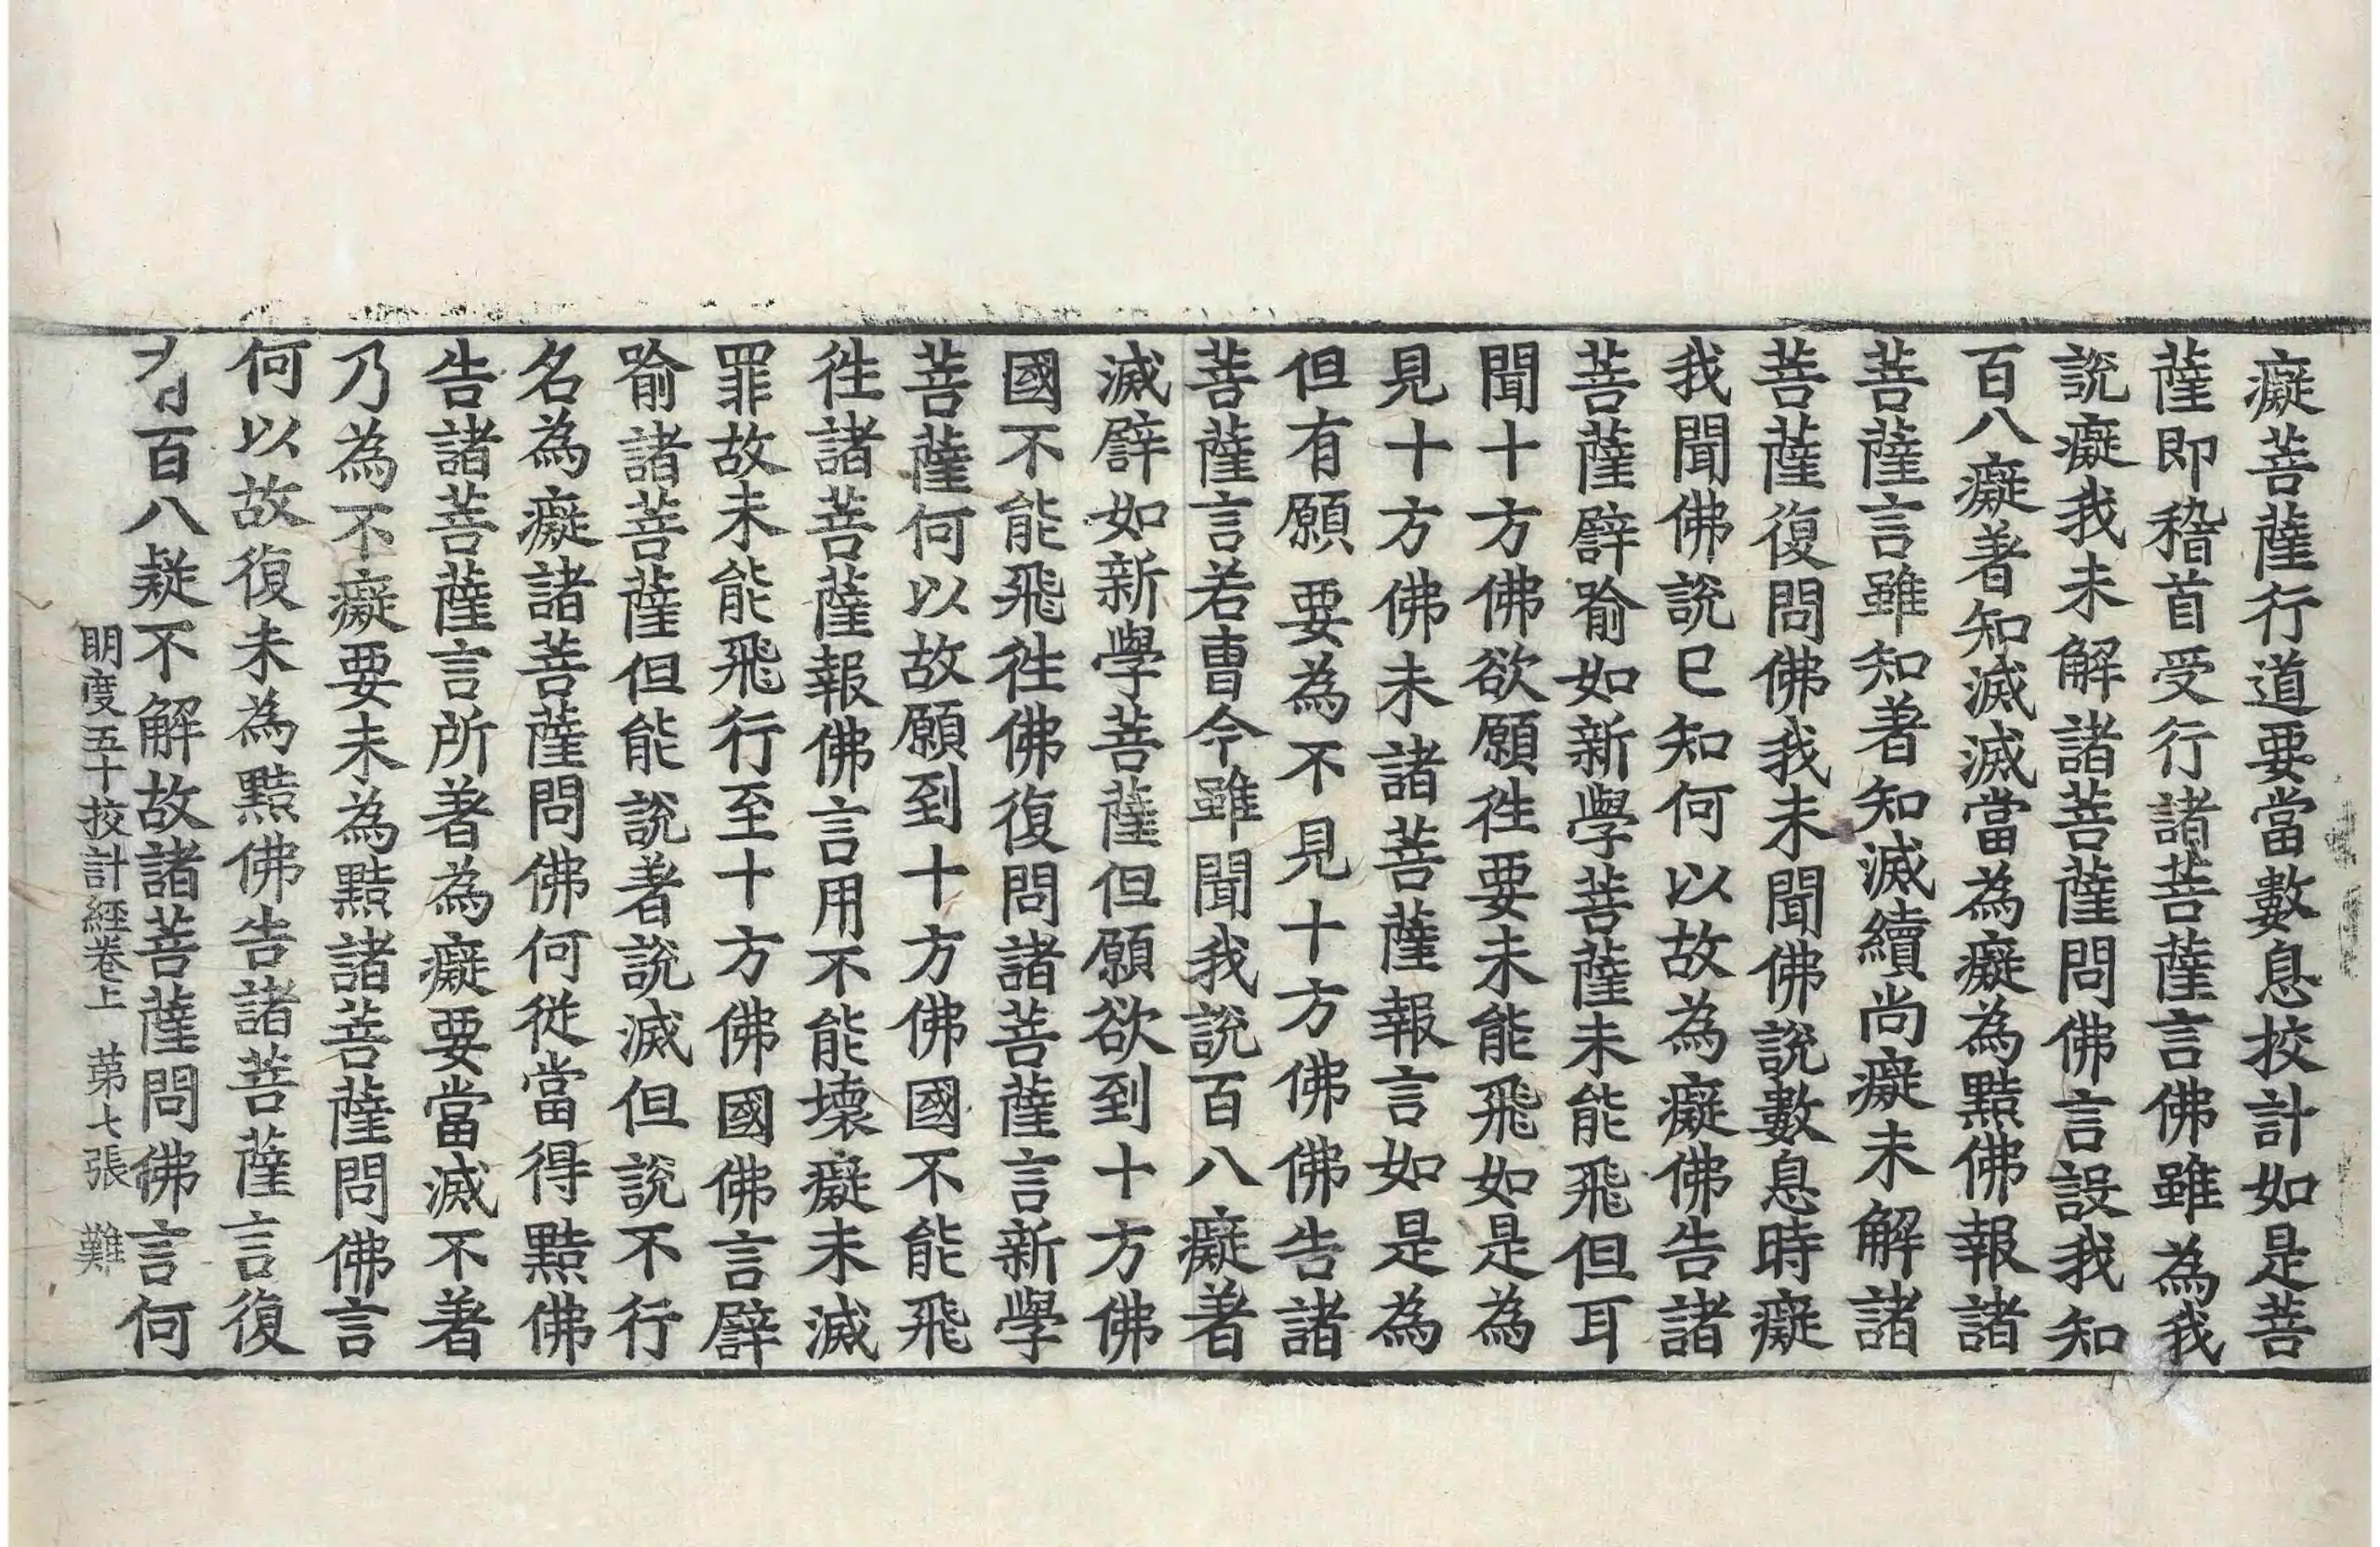 癡菩薩行道要當數息挍計如是菩
薩即稽首受行諸菩薩言佛雖為我
說癡我未解諸菩薩問佛言設我知
百八癡著知滅滅當為癡為黠佛報諸
菩薩言雖知著知滅續尚癡未解諸
菩薩復問佛我未聞佛說數息時癡
我聞佛說已知何以故為癡佛告諸
菩薩辟喻如新學菩薩未能飛但耳
聞十方佛欲願徃要未能飛如是為
見十方佛未諸菩薩報言如是為
但有願要為不見十方佛佛告諸
菩薩言若曹今雖聞我說百八癡著
滅辟如新學菩薩但願欲到十方佛
國不能飛徃佛復問諸菩薩言新學
菩薩何以故願到十方佛國不能飛
徃諸菩薩報佛言用不能壞癡未滅
罪故未能飛行至十方佛國佛言辟
喻諸菩薩但能說著說滅但說不行
名為癡諸菩薩問佛何從當得黠佛
告諸菩薩言所著為癡要當滅不著
乃為不癡要未為黠諸菩薩問佛言
何以故復未為黠佛告諸菩薩言復
有百八疑不解故諸菩薩問佛言何
明度五十挍計經卷上 苐七張 難